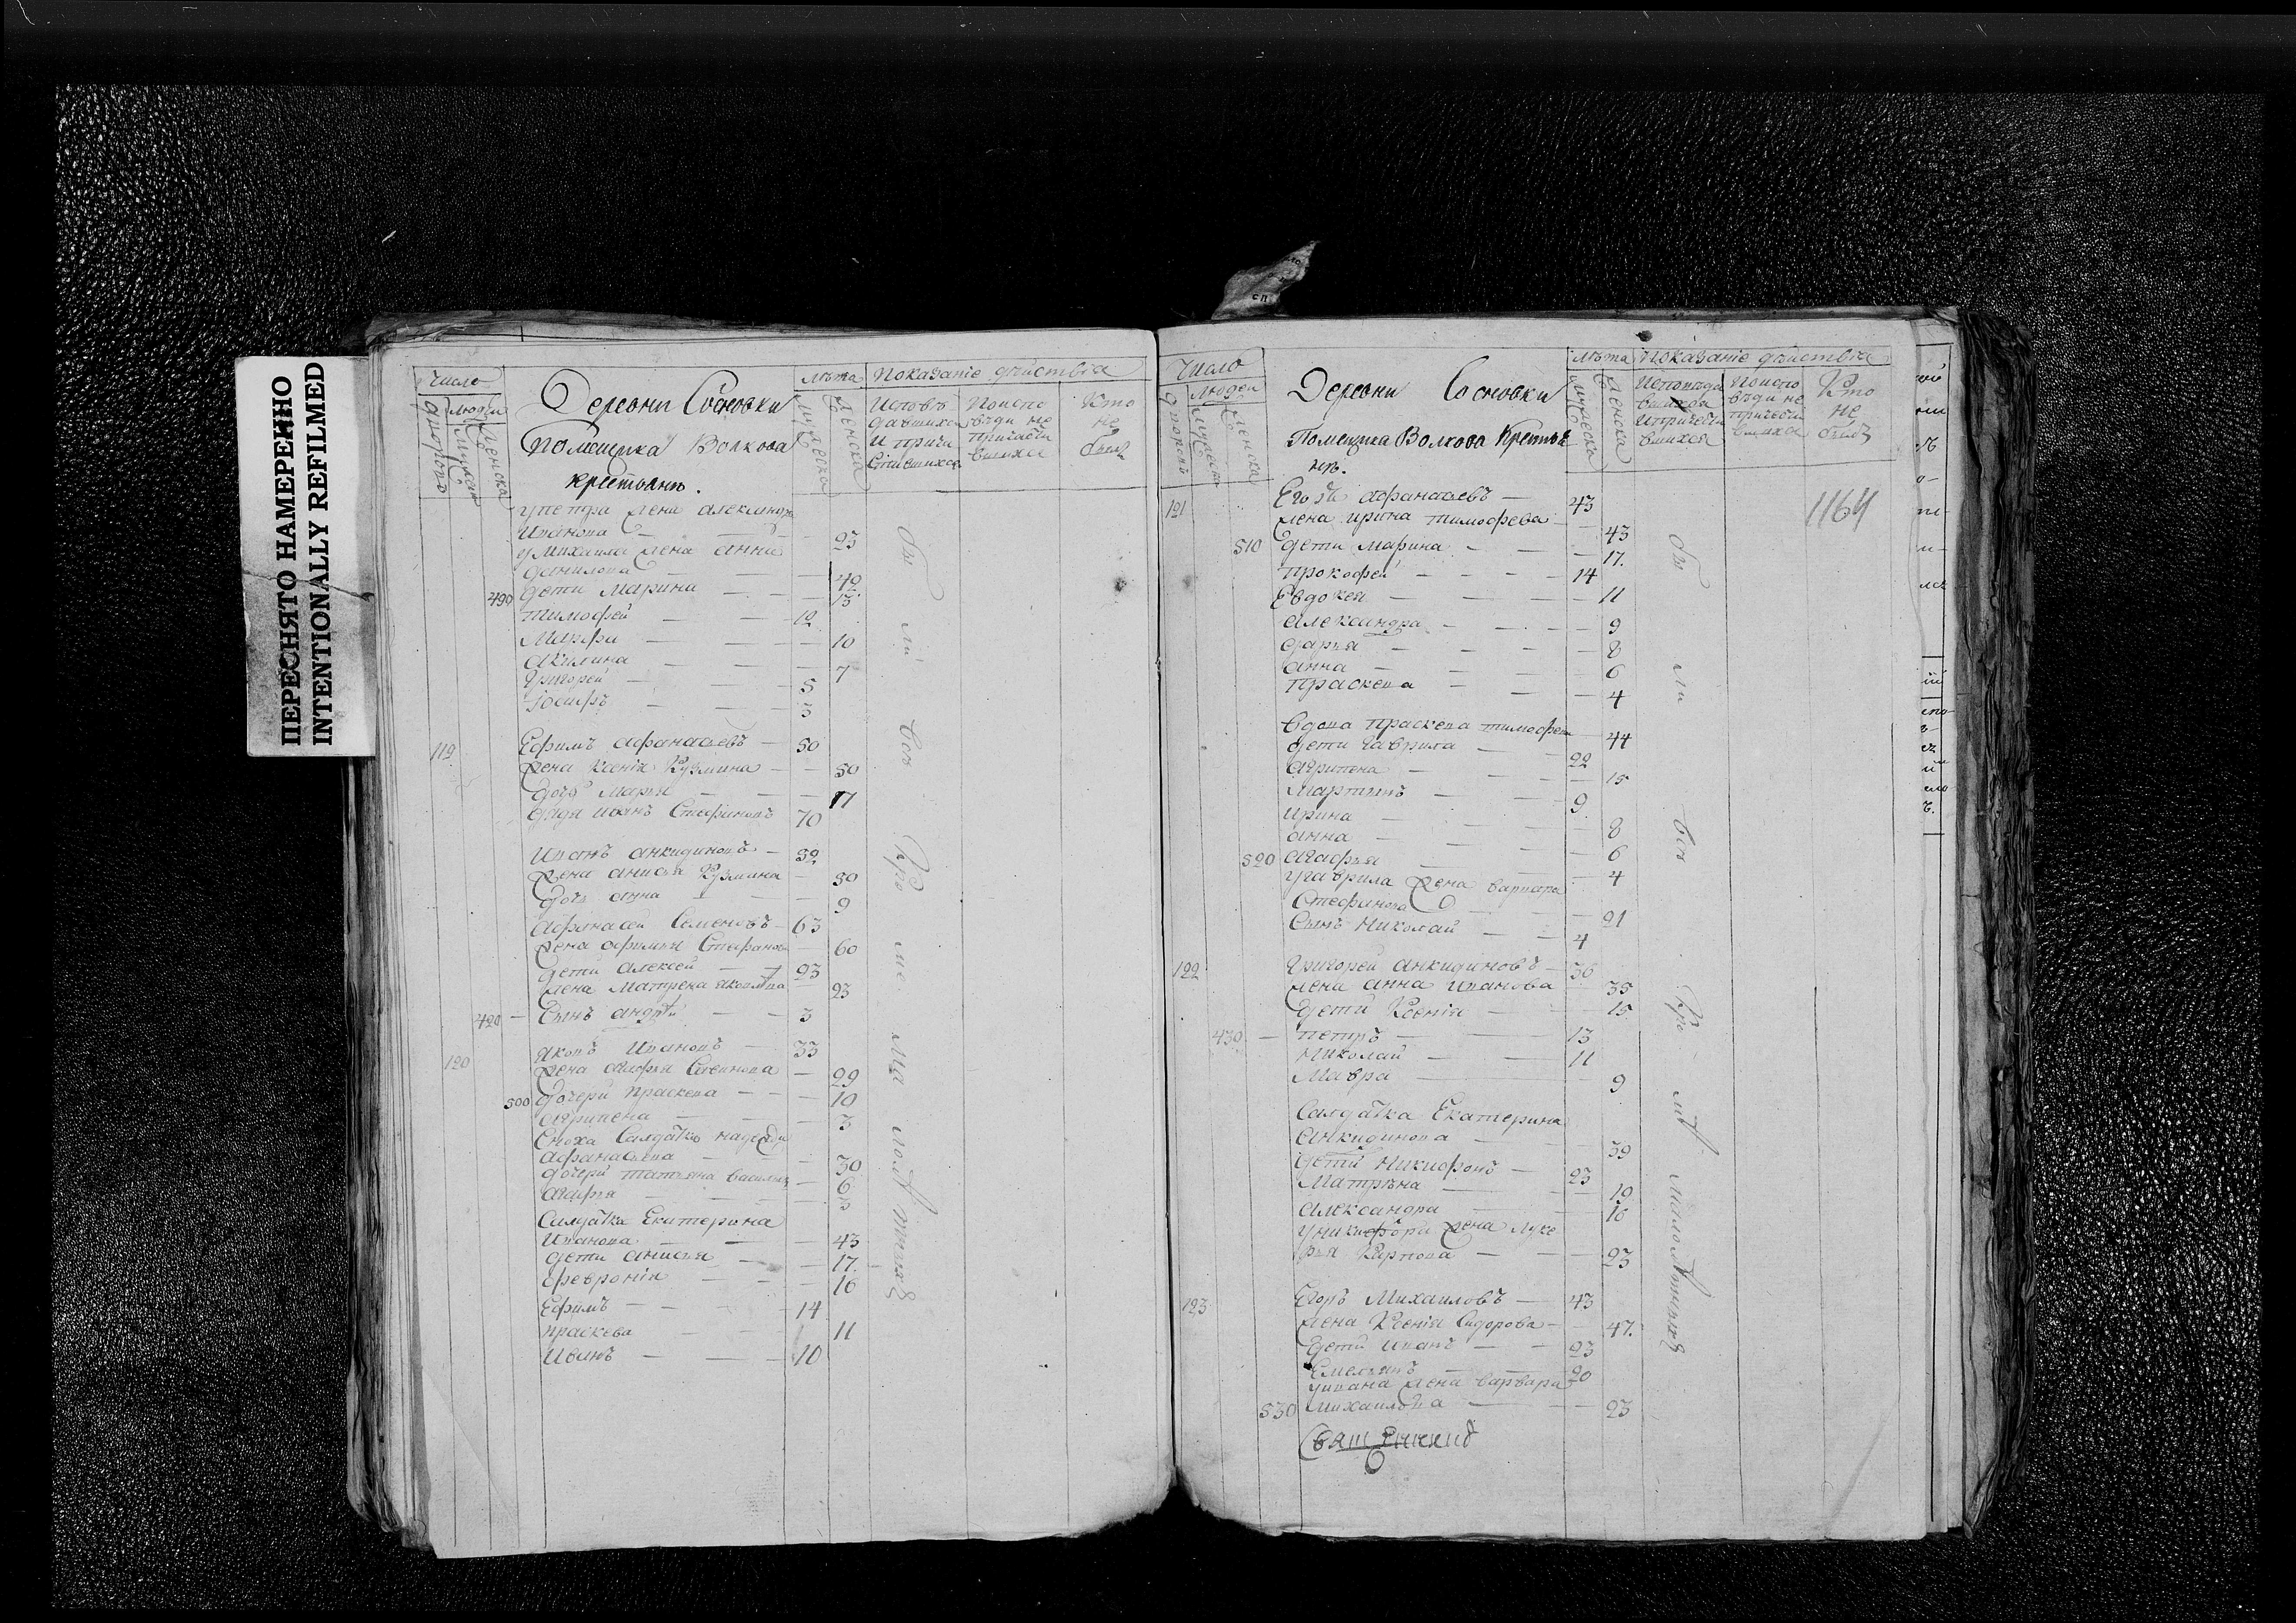 ПЕРЕСНЯТО НАМЕРЕННО
INTENTIONALLY REFILMED
Число
дворовъ
людей
мужеска
женска
Деревни Сосновки
помещика Волкова
крестьянъ.
лѣта
мужеска
женска
Показаніе дѣйствія
Исповѣ
давшихся
и прича
стившихся
Поиспо
вѣди не
причасти
вшихся
Кто
не
былъ
упетра жена александра
Иванова — — 23
у Михаила жена анна
данилова — — 42
490 дети Марина — — 13
тимофей — — 12
Марфа — — 10
акилина — — 7
Григорей — — 5
Іосифъ — — 3
119 Ефимъ афанасьевъ — 50
жена Ксенія Кузмина — 50
дочь Марья — — 17
дядя иванъ Стефановъ 70
Иванъ анкидиновъ — 52
жена анисья Кузмина — 50
дочь анна — — 9
афанасей Семеновъ — 63
жена афимья Стефанова — 60
дети алексей — — 23
жена Матрена яковлева 23
420 — Сынъ андрей — — 3
120 яковъ Ивановъ — 33
жена агафья — 29
500 дочери праскева — — 10
агрипена — — 3
Сноха Салдатка надежда
афанасьева — — 30
дочери татьяна васильева — 6
агафья — — 3
Салдатка Екатерина
Иванова — — 43
дети анисья — — 17.
февронія — — 16
Ефимъ — — 14
праскева — — 11
Иванъ — — 10
бы ли всѣ Кро ме ма лолѣтныхъ
Число
дворовъ
людей
мужеска
женска
Деревни Сосновки
Помещика Волкова Крестья
нъ.
лѣта
мужеска
женска
Показаніе дѣйствія
Исповѣда
вшихся
и причасти
вшихся
Поиспо
вѣди не
причасти
вшихся
Кто
не
былъ
1164
121 Егоръ афанасьевъ — 43
жена ирина тимофеева — 43
510 дети Марина — — 17.
Прокофей — — 14
Евдокея — — 11
александра — — 9
дарья — — 8
анна — — 6
Праскева — — 4
вдова праскева тимофеева 44
дети гаврила — — 22
агрипена — — 15
Мартинъ — — 9.
ирина — — 8
анна — — 6
520 агафья — — 4
угаврила жена варвара
Стефанова — — 21
Сынъ Николай — — 4
122 Григорей анкидиновъ — 36
жена анна иванова 35
дети Ксенія — — 15
430 — петръ — — 13
Николай — — 11
Мавра — — 9
Салдатка Екатерина
анкидинова — — 39
дети Никифоръ — 23
Матрена — — 19
александра — — 16
уникифора жена луке
рья Карпова — — 23
123 Егоръ Михаиловъ — 43
жена Ксенія Сидорова — 47.
дети иванъ — — 23
Емельянъ — — 20
уивана жена варвара
530 михаилова — — 23
бы ли всѣ Кро мѣ малолѣтныхъ
Священникъ